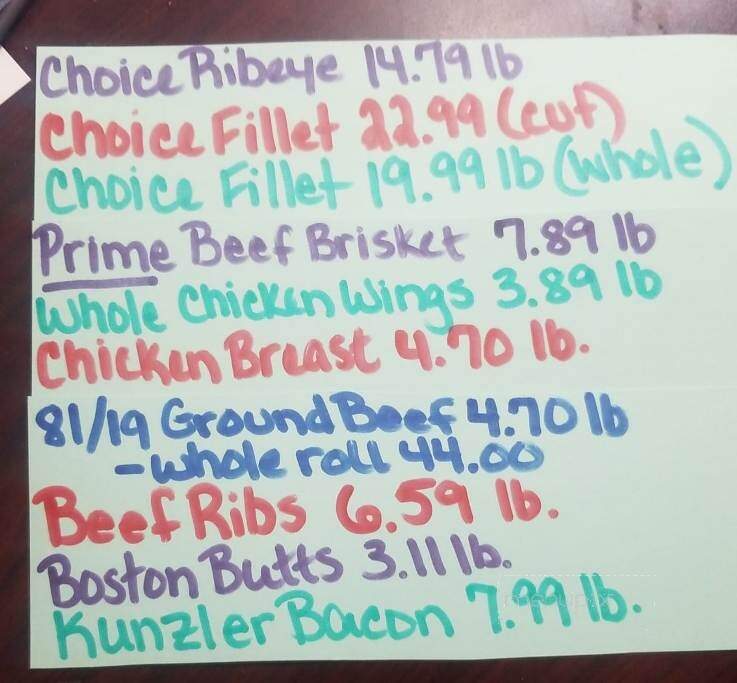 Choice Ribeye 14.79 lb
Choice Fillet 22.99 (cut)
Choice Fillet 19.99 lb (whole)
Prime Beef Brisket 7.89 lb
Whole Chicken Wings 3.89 lb
Chicken Breast 4.70 lb.
81/19 Ground Beef 4.70 lb
-whole roll 44.00
Beef Ribs 6.59 lb.
Boston Butts 3.11 lb.
Kunzler Bacon 7.99 lb.